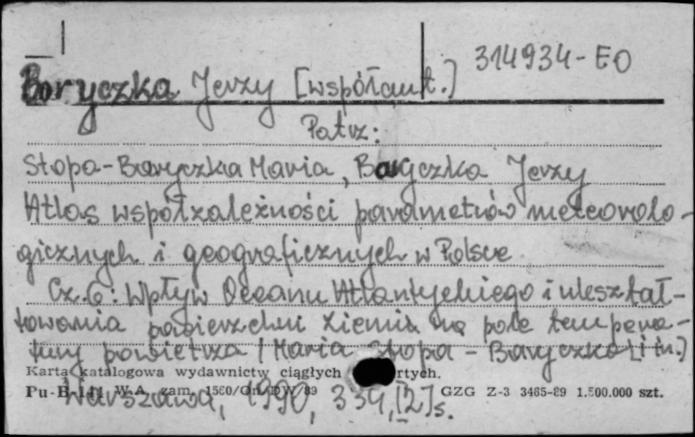 314934-EO
Boryczka Jerzy [współaut.]
Patrz:
Stopa-Boryczka Maria, Boryczka Jerzy
Atlas współzależności parametrów meteorolo-
gicznych i geograficznych w Polsce
Cz. 6: Wpływ Oceanu Atlantyckiego i ukształ-
towania powierzchni Ziemi na pole tempera-
tury powietrza / Maria Stopa-Boryczka [i in.]
Karta katalogowa wydawnictw ciągłych rtych.
Pu-B-141 W.A. zam. GZG Z-3 3465-89 1.500.000 szt.
Warszawa, 1990, 339, [2] s.